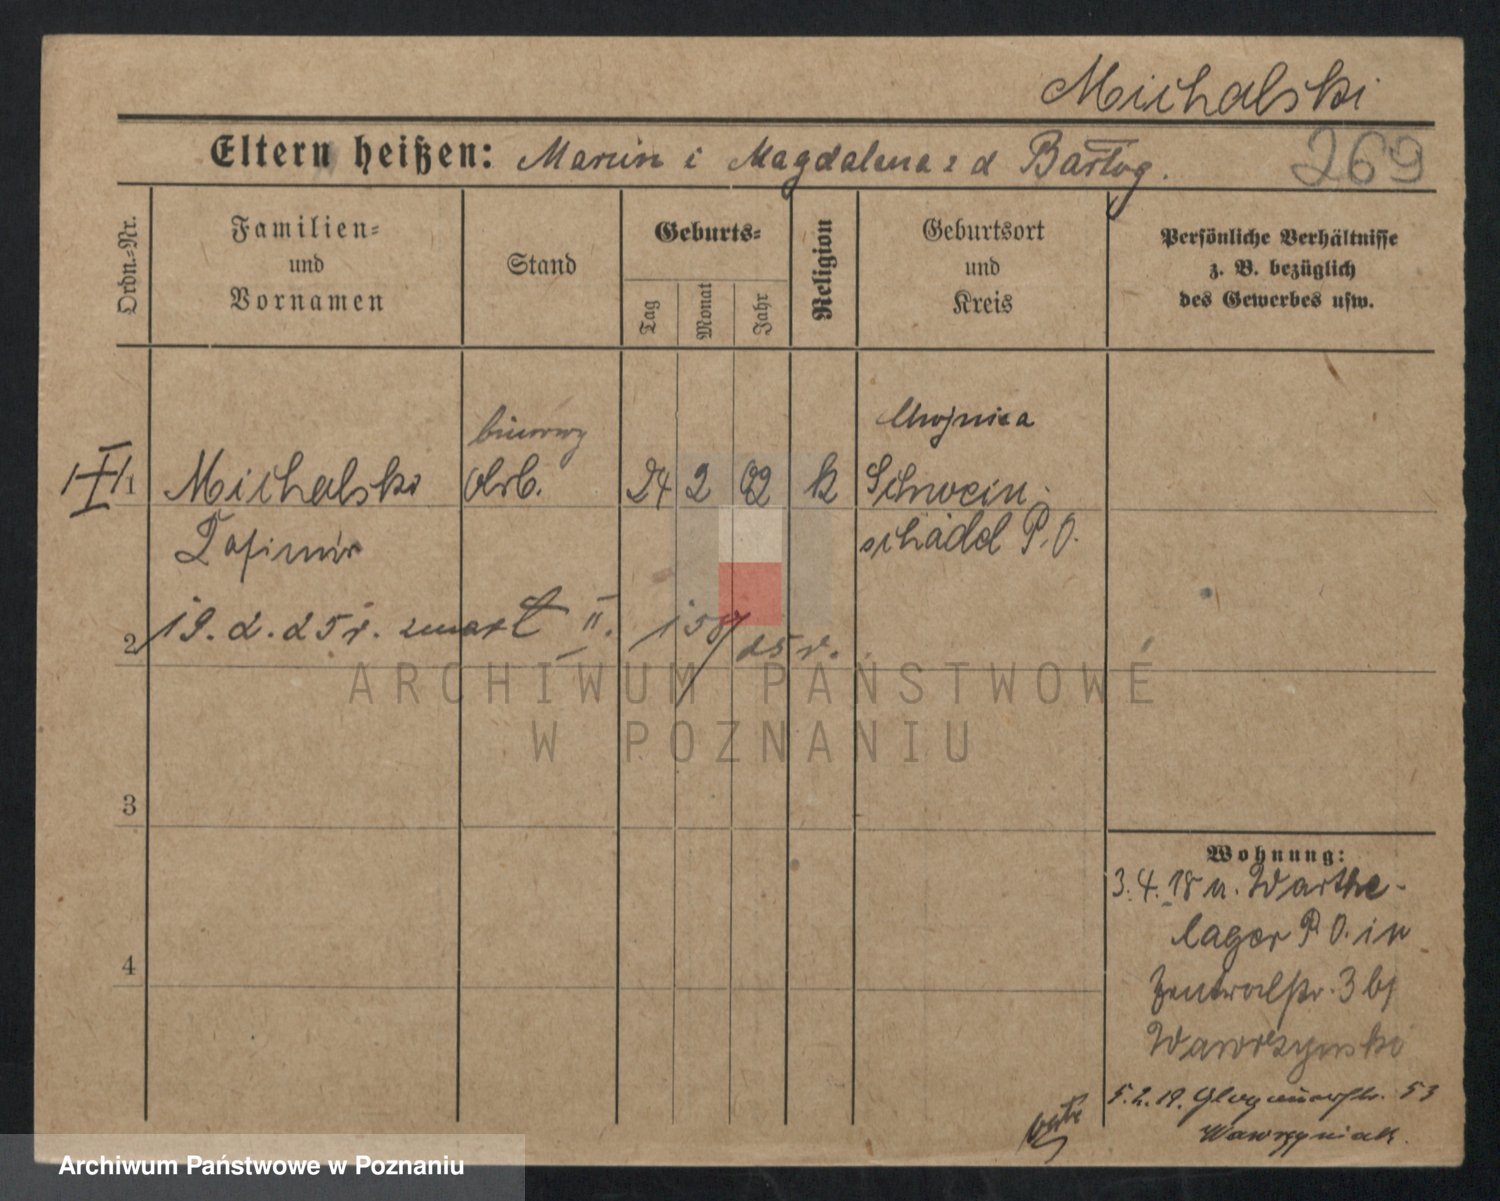 Michalski
Eltern heißen: Marcin i Magdalena z d Bartog.
269
Ordn.-Nr.
Familien-
und
Vornamen
Stand
Geburts-
Tag
Monat
Jahr
Religion
Geburtsort
und
Kreis
Persönliche Verhältnisse
z. B. bezüglich
des Gewerbes usw.
biurowy
Chojnica
1 Michalski Arb. 24 2 92 k Schwein-
schädel P. O.
19. 2. 25 r. zmarł II. 158/25 r.
2
3
4
Wohnung:
3.4.18 n. Warthe-
lager P. O. in
Zentralstr. 3 b/
Wawrzynski
5.2.19. Glogauerstr. 53
Wawrzyniak.
verte
ARCHIWUM PAŃSTWOWE
W POZNANIU
Archiwum Państwowe w Poznaniu